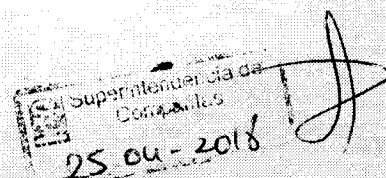 Superintendencia de
Compañías
25 04 - 2018